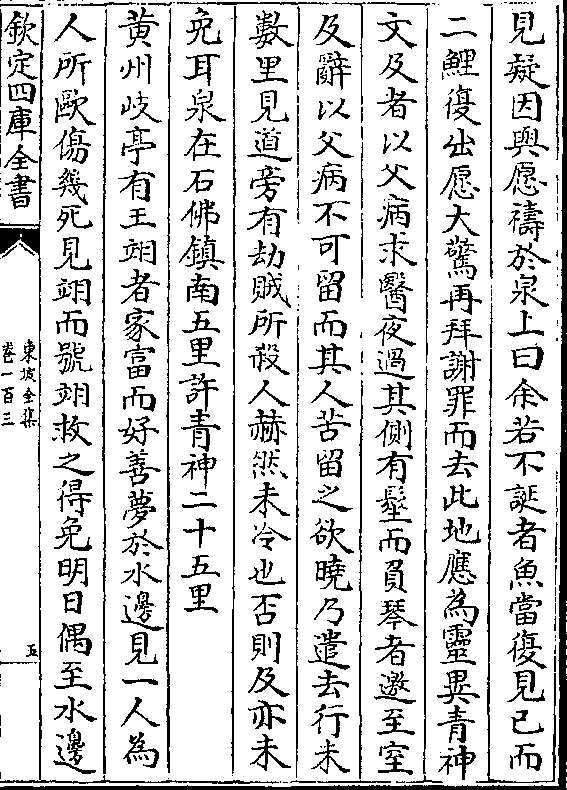 見疑因與愿禱於泉上曰余若不誕者魚當復見已而
二鯉復出愿大驚再拜謝罪而去此地應為靈異青神
文及者以父病求醫夜過其側有髽而負琴者邀至室
及辭以父病不可留而其人苦留之欲曉乃遣去行未
數里見道旁有劫賊所殺人赫然未冷也否則及亦未
免耳泉在石佛鎮南五里許青神二十五里
黄州岐亭有王翊者家富而好善夢於水邊見一人為
人所毆傷幾死見翊而號翊救之得免明日偶至水邊
欽定四庫全書
東坡全集
卷一百三
五